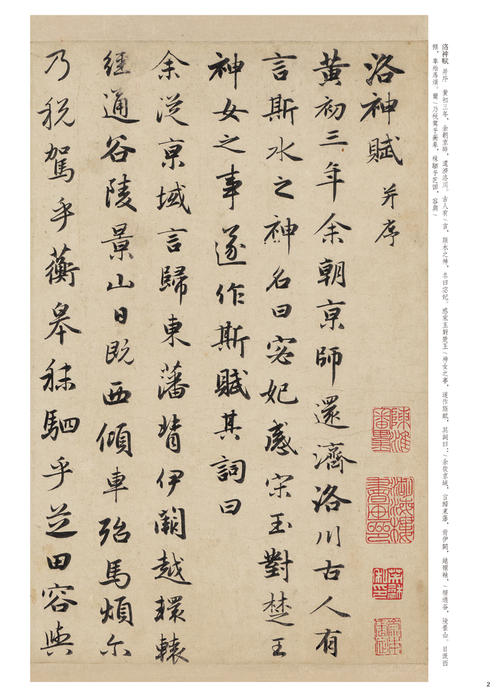 洛神賦 并序 黃初三年，余朝京師，還濟洛川。古人有／言，斯水之神，名曰宓妃。感宋玉對楚王／神女之事，遂作斯賦，其詞曰：／余從京域，言歸東藩，背伊闕，越轘轅，／經通谷，陵景山。日既西
傾，車殆馬煩。爾／乃稅駕乎蘅皋，秣駟乎芝田，容與／
洛神賦 并序
黃初三年余朝京師還濟洛川古人有
言斯水之神名曰宓妃感宋玉對楚王
神女之事遂作斯賦其詞曰
余從京域言歸東藩背伊闕越轘轅
經通谷陵景山日既西傾車殆馬煩尔
乃稅駕乎蘅皋秣駟乎芝田容與
2